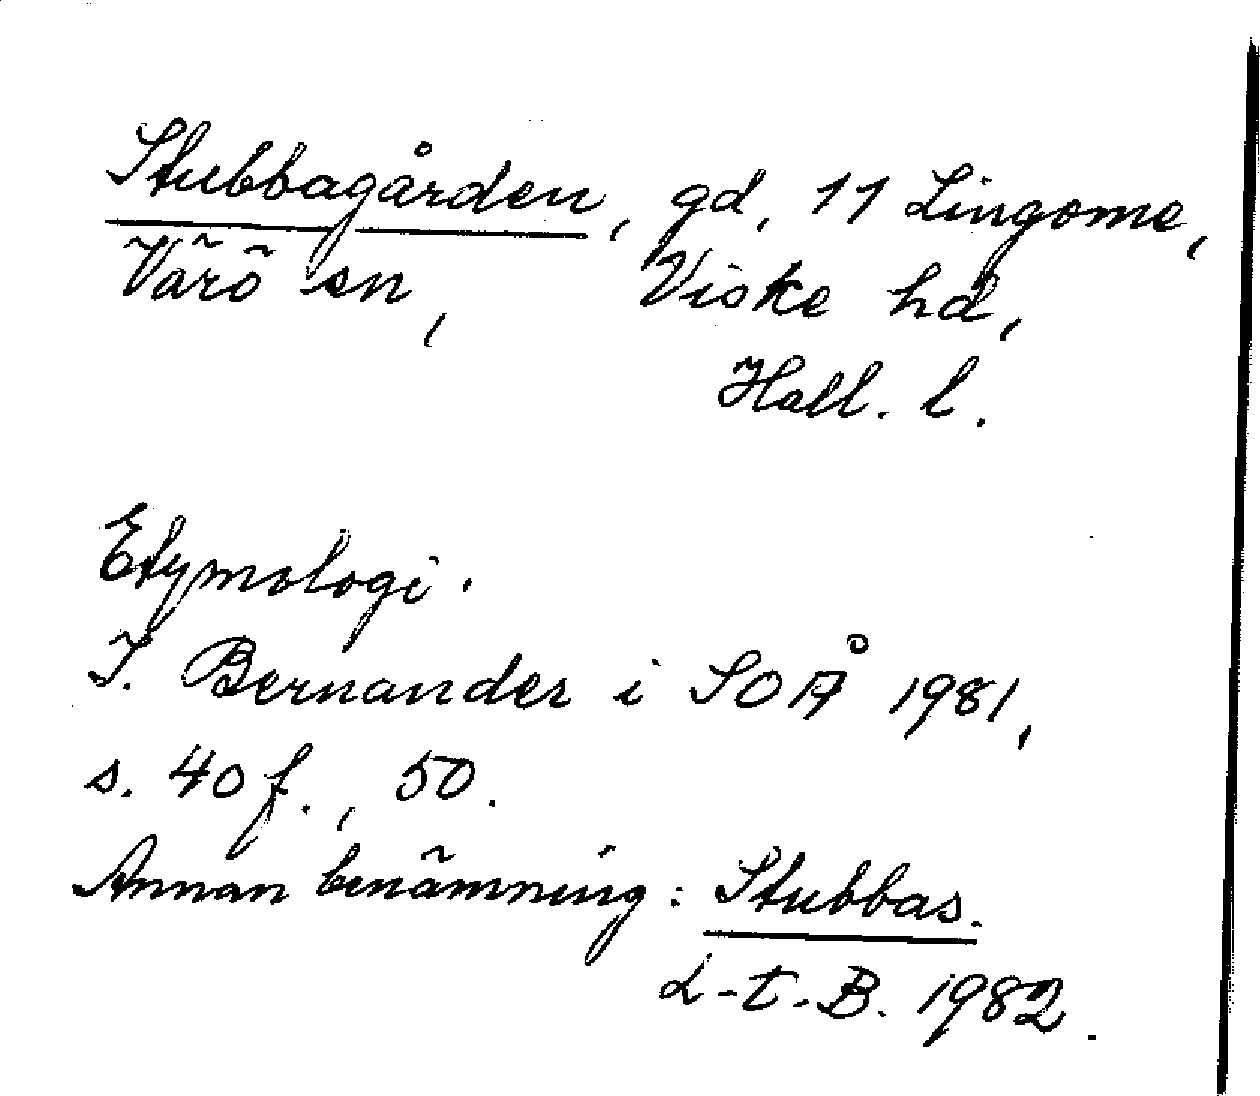 Stubbagården, gd, 11 Lingome,
Värö sn, Viske hd,
Hall. l.
Etymologi.
I. Bernander i SOÅ 1981,
s. 40 f., 50.
Annan benämning: Stubbas.
L-t-B. 1982.